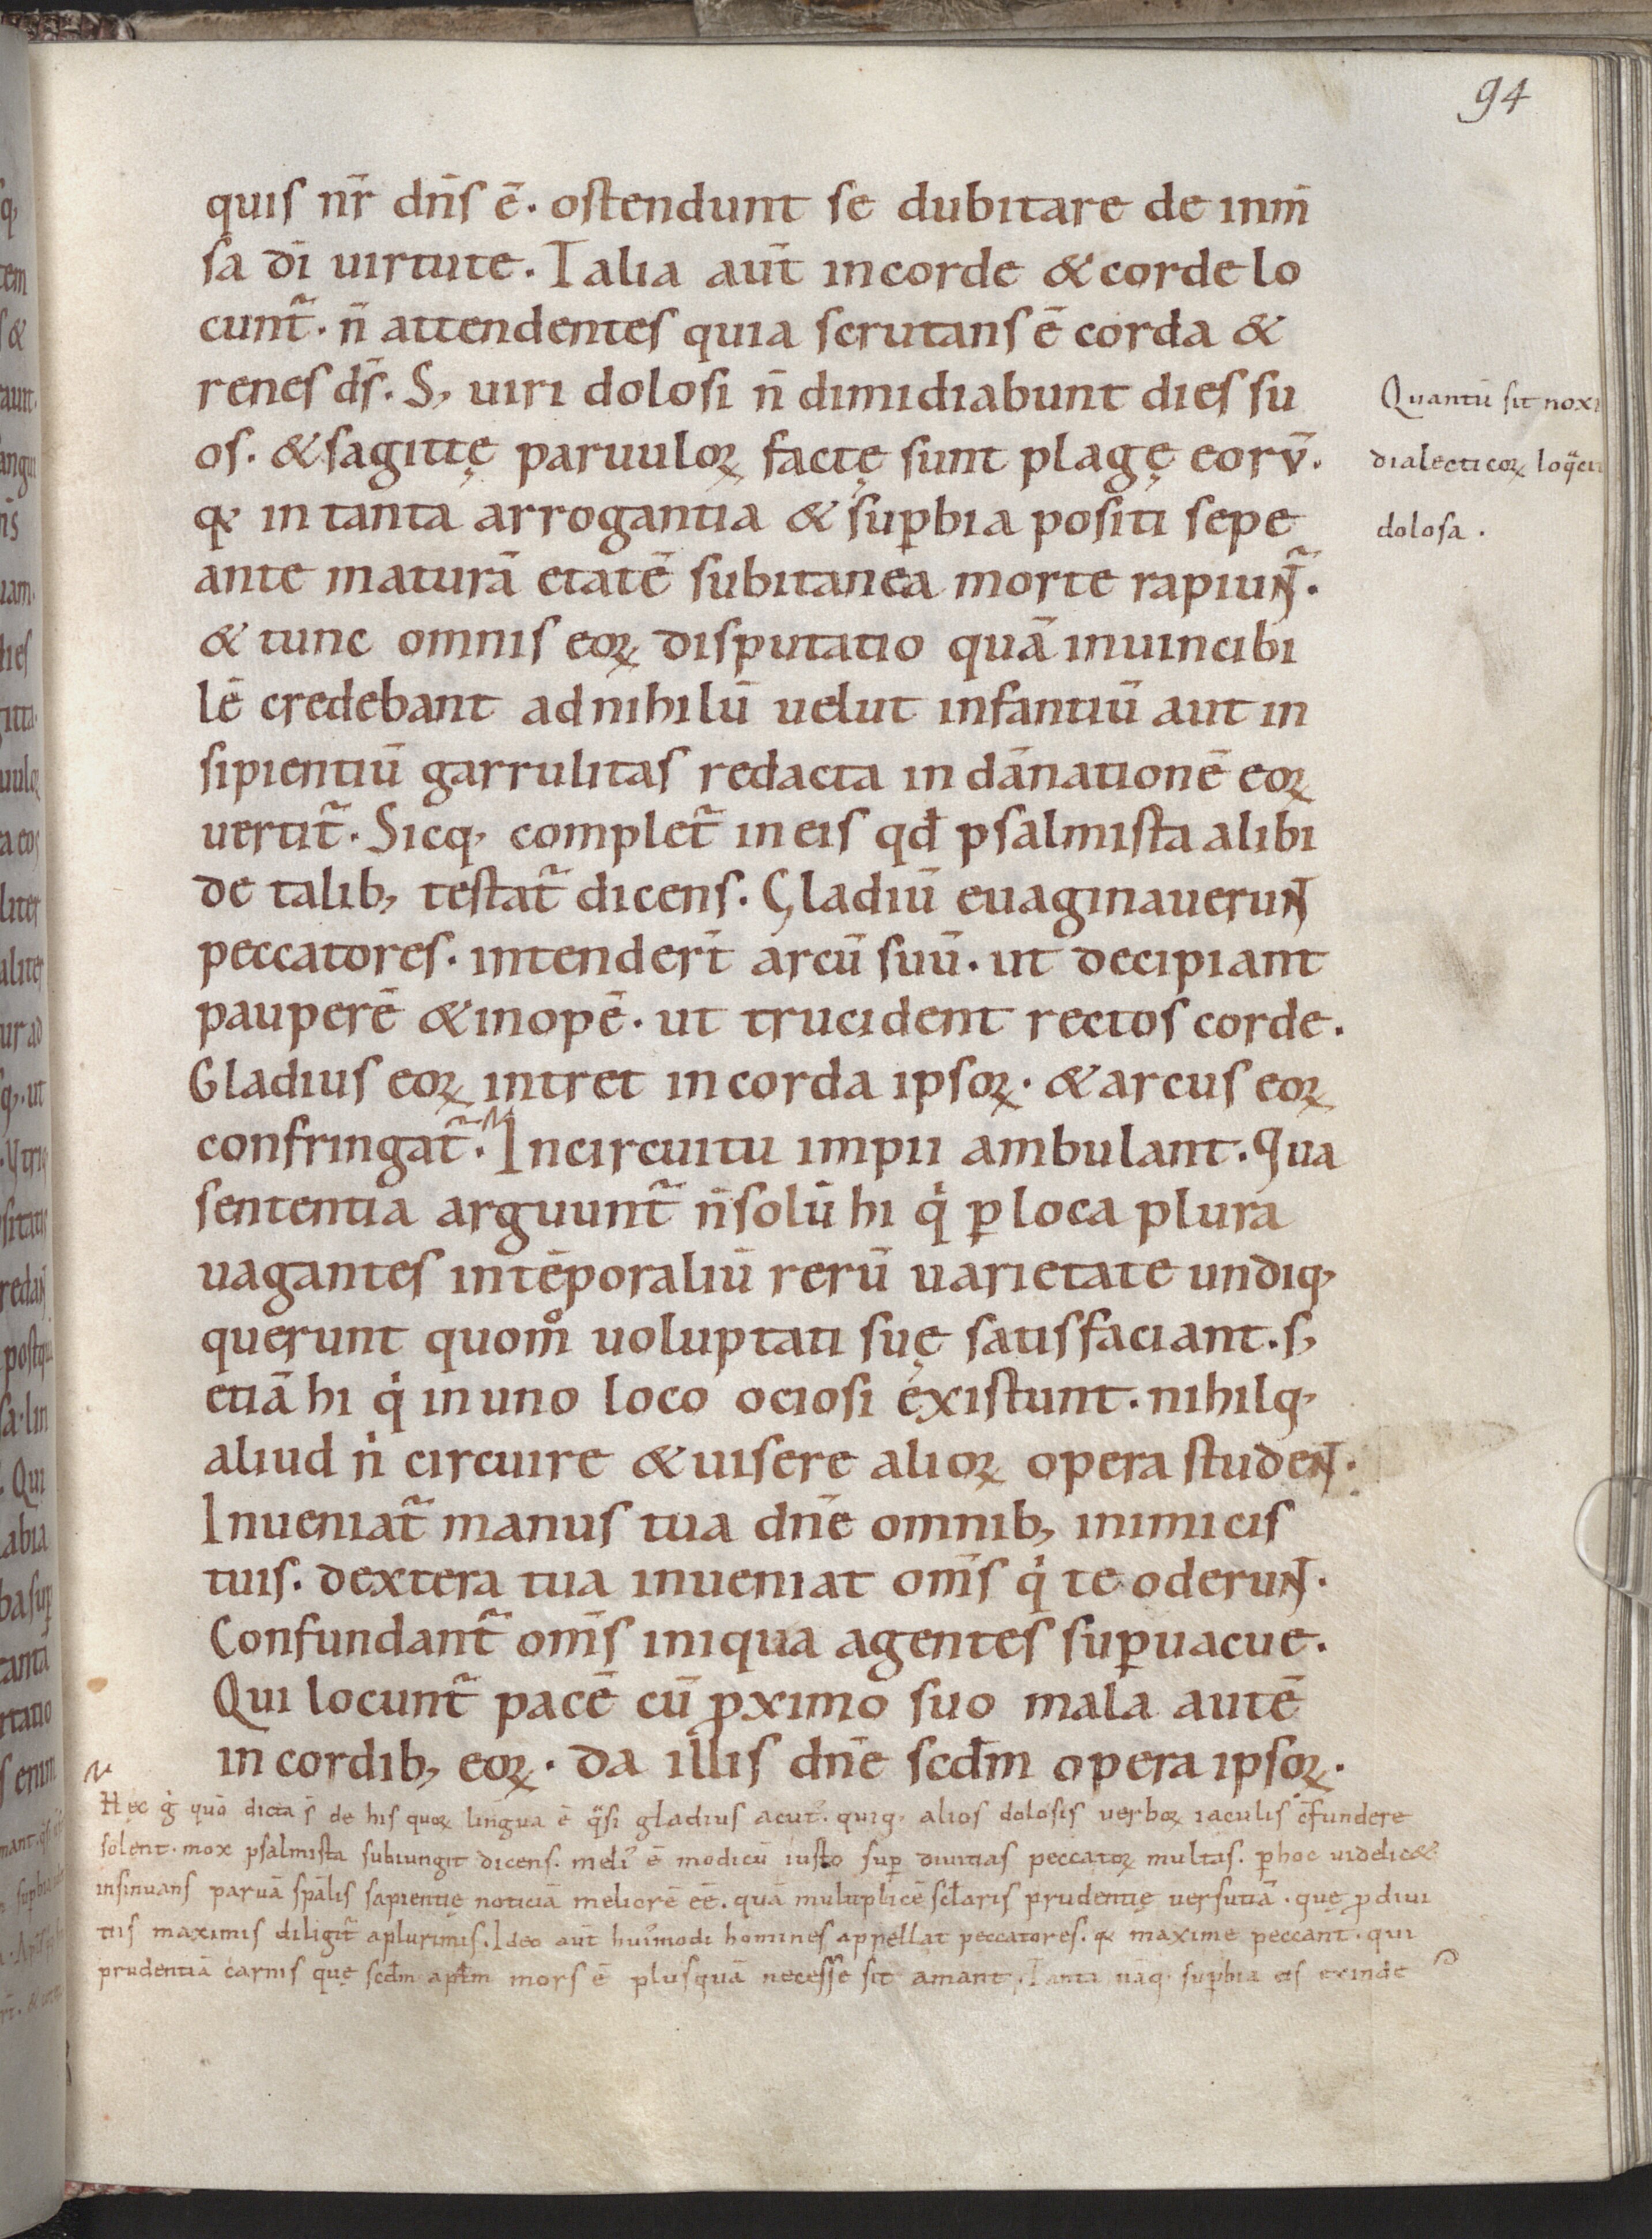 94
quis nr̄ dn̄s ē. ostendunt se dubitare de inm̄
sa dī uirtute. Talia aut̄ in corde & corde lo
cunt᷑. n̄ attendentes quia scrutans ē corda &
renes dš. S; uiri dolosi n̄ dimidiabunt dies su
os. & sagittę paruuloꝝ factę sunt plagę eorv̄.
qꝛ in tanta arrogantia & sup̱bia positi sepe
ante maturā etatē subitanea morte rapiunt᷑.
& tunc omnis eoꝝ disputatio quā inuincibi
lē credebant ad nihilū uelut infantiū aut in
sipientiū garrulitas redacta in dānationē eoꝝ
uertit᷑. Sicq; complet᷑ in eis qđ psalmista alibi
de talib; testat᷑ dicens. Gladiū euaginauerunt
peccatores. intender̄t arcū suū. ut decipiant
pauperē & inopē. ut trucident rectos corde.
Gladius eoꝝ intret in corda ipsoꝝ. & arcus eoꝝ
confringat᷑. In circuitu impii ambulant. Qua
sententia arguunt᷑ n̄ solū hi qi̇ ꝑ loca plura
uagantes in tēporaliū rerū uarietate undiq;
querunt quom̊ uoluptati suę satisfaciant. s;
etiā hi qi̇ in uno loco ociosi existunt. nihilq;
aliud ni̇ circuire & uisere alioꝝ opera student.
Inueniat᷑ manus tua dn̄e omnib; inimicis
tuis. dextera tua inueniat om̄s qi̇ te oderunt.
Confundant᷑ om̄s iniqua agentes suꝑuacue.
Qui locunt᷑ pacē cū ꝓximo suo mala autē
in cordib; eoꝝ. da illis dn̄e scđm opera ipsoꝝ.
Quantū sit noxi
dialecticoꝝ loq̄ci
dolosa.
Hęc gͥ quō dicta s̄ de his quoꝝ lingua ē q̄si gladius acut᷒. quiq; alios dolosis uerboꝝ iaculis c̄fundere
solent. mox psalmista subiungit dicens. meli᷒ ē modicū iusto suꝑ diuitias peccatoꝝ multas. ꝑ hoc uidelic&
insinuans paruā spālis sapientię noticiā meliorē eē. quā multiplicē scłaris prudentię uersutiā. quę ꝓ diui
tiis maximis diligit᷑ a plurimis. Ideo aut̄ hui᷒modi homines appellat peccatores. qꝛ maxime peccant. qui
prudentiā carnis quę scđm apłm mors ē plusquā necesse sit amant. Tanta nāq; suꝑbia eis exinde